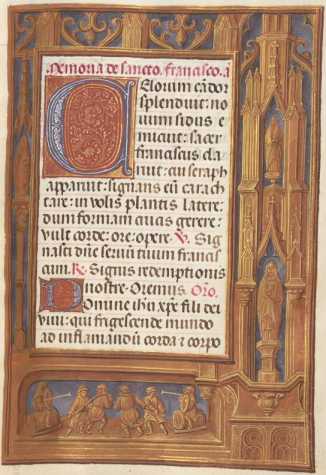 Memoria de sancto francisco. a
Celorum cādor
splenduit: no
uum sidus e
micuit: sacer
franciscus cla
ruit: cui seraph
apparuit: signans eū carach
tere: in volis plantis latere:
dum formam crucis gerere:
vult corde: ore: opere. V. Sig
nasti dn̄e seruū tuum francis
cum. Re. Signis redemptionis
nostre. Oremus. Oro.
Domine ihū xp̄e fili dei
viui: qui frigescende mundo
ad inflamandū corda et corpo